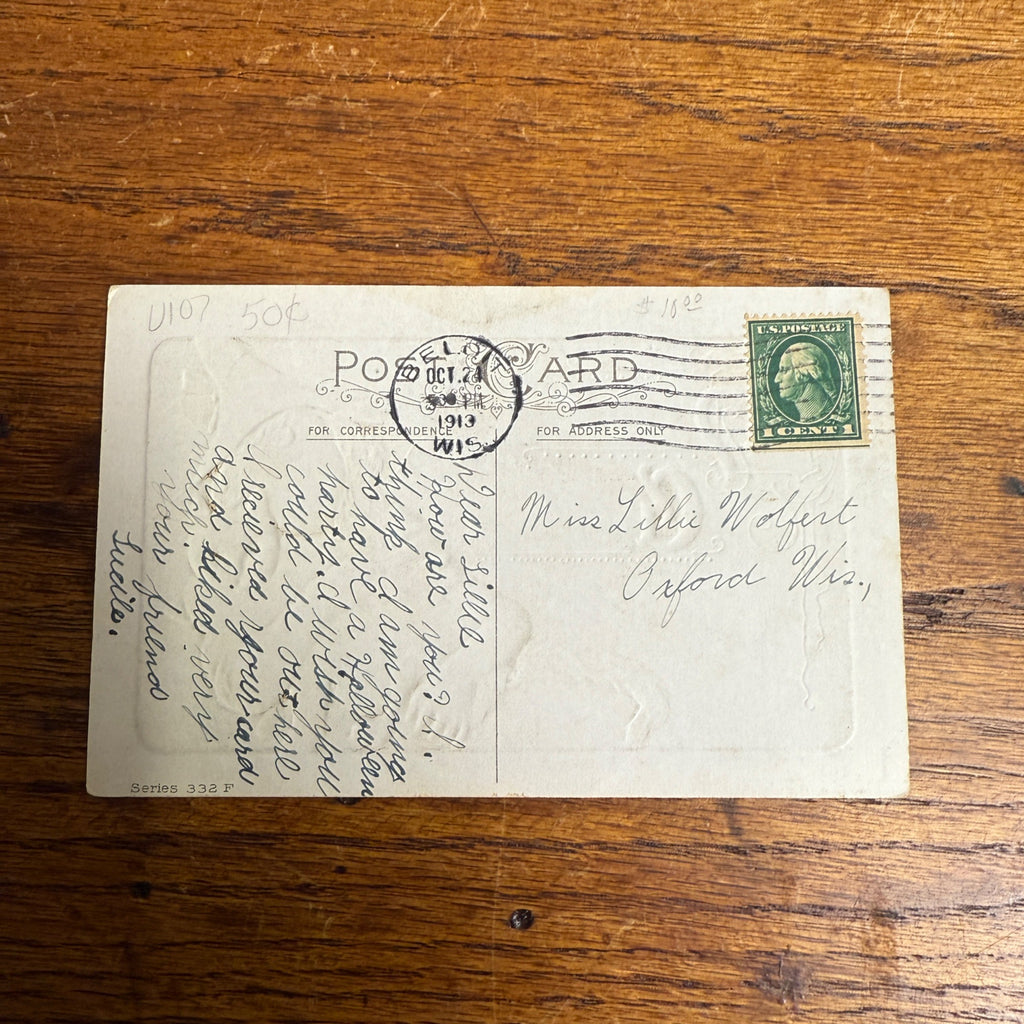 U107 50¢
$ 18.00
POST CARD
BELOIT
OCT. 24
PM
1913
WIS.
U.S. POSTAGE
1 CENT 1
FOR CORRESPONDENCE
FOR ADDRESS ONLY
Miss Lillie Wolfert
Oxford Wis.,
Dear Lillie
How are you? I.
think I am going
to have a Hallowen
party. I wish you
could be out here
I recieved your card
and liked very
much.
your friend
Lucile.
Series 332 F